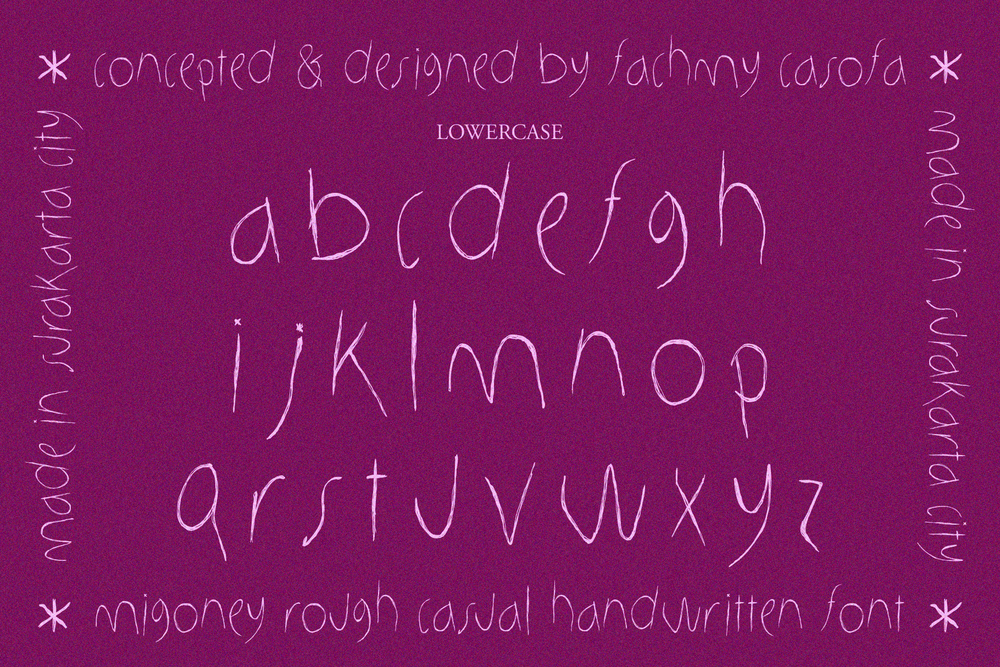 * concepted & designed by fachmy casofa *
LOWERCASE
abcdefgh
ijklmnop
qrstuvwxyz
made in surakarta city
made in surakarta city
* migoney rough casual handwritten font *